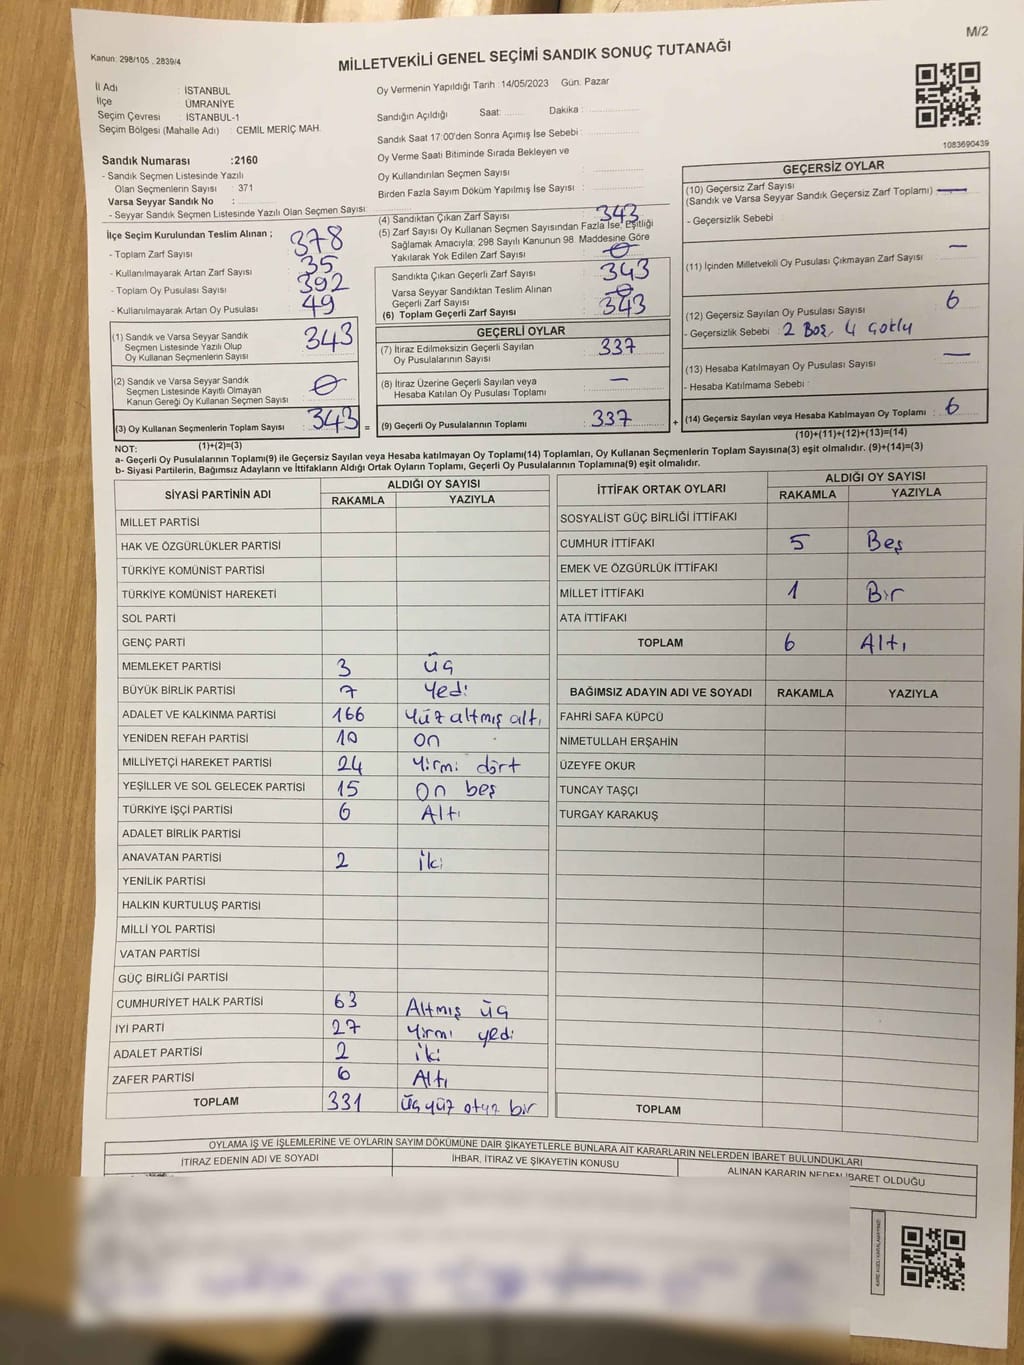 M/2
Kanun: 298/105 , 2839/4
MİLLETVEKİLİ GENEL SEÇİMİ SANDIK SONUÇ TUTANAĞI
İl Adı : İSTANBUL
İlçe : ÜMRANİYE
Seçim Çevresi : İSTANBUL-1
Seçim Bölgesi (Mahalle Adı) : CEMİL MERİÇ MAH.
Sandık Numarası :2160
- Sandık Seçmen Listesinde Yazılı
Olan Seçmenlerin Sayısı : 371
Varsa Seyyar Sandık No :
- Seyyar Sandık Seçmen Listesinde Yazılı Olan Seçmen Sayısı:
Oy Vermenin Yapıldığı Tarih : 14/05/2023 Gün: Pazar
Sandığın Açıldığı Saat: Dakika :
Sandık Saat 17:00'den Sonra Açımış İse Sebebi :
Oy Verme Saati Bitiminde Sırada Bekleyen ve
Oy Kullandırılan Seçmen Sayısı :
Birden Fazla Sayım Döküm Yapılmış İse Sayısı :
1083690439
İlçe Seçim Kurulundan Teslim Alınan ;
- Toplam Zarf Sayısı : 378
- Kullanılmayarak Artan Zarf Sayısı : 35
- Toplam Oy Pusulası Sayısı : 392
- Kullanılmayarak Artan Oy Pusulası : 49
(1) Sandık ve Varsa Seyyar Sandık
Seçmen Listesinde Yazılı Olup
Oy Kullanan Seçmenlerin Sayısı : 343
(2) Sandık ve Varsa Seyyar Sandık
Seçmen Listesinde Kayıtlı Olmayan
Kanun Gereği Oy Kullanan Seçmen Sayısı : 0
(3) Oy Kullanan Seçmenlerin Toplam Sayısı : 343 =
(1)+(2)=(3)
(4) Sandıktan Çıkan Zarf Sayısı : 343
(5) Zarf Sayısı Oy Kullanan Seçmen Sayısından Fazla İse, Eşitliği
Sağlamak Amacıyla; 298 Sayılı Kanunun 98. Maddesine Göre
Yakılarak Yok Edilen Zarf Sayısı : 0
Sandıkta Çıkan Geçerli Zarf Sayısı : 343
Varsa Seyyar Sandıktan Teslim Alınan
Geçerli Zarf Sayısı : 0
(6) Toplam Geçerli Zarf Sayısı : 343
GEÇERLİ OYLAR
(7) İtiraz Edilmeksizin Geçerli Sayılan
Oy Pusulalarının Sayısı : 337
(8) İtiraz Üzerine Geçerli Sayılan veya
Hesaba Katılan Oy Pusulası Toplamı : —
(9) Geçerli Oy Pusulalarının Toplamı : 337 +
GEÇERSİZ OYLAR
(10) Geçersiz Zarf Sayısı
(Sandık ve Varsa Seyyar Sandık Geçersiz Zarf Toplamı) : —
- Geçersizlik Sebebi :
(11) İçinden Milletvekili Oy Pusulası Çıkmayan Zarf Sayısı : —
(12) Geçersiz Sayılan Oy Pusulası Sayısı : 6
- Geçersizlik Sebebi : 2 Boş, 4 Çoklu
(13) Hesaba Katılmayan Oy Pusulası Sayısı : —
- Hesaba Katılmama Sebebi :
(14) Geçersiz Sayılan veya Hesaba Katılmayan Oy Toplamı : 6
(10)+(11)+(12)+(13)=(14)
NOT:
a- Geçerli Oy Pusulalarının Toplamı(9) ile Geçersiz Sayılan veya Hesaba katılmayan Oy Toplamı(14) Toplamları, Oy Kullanan Seçmenlerin Toplam Sayısına(3) eşit olmalıdır. (9)+(14)=(3)
b- Siyasi Partilerin, Bağımsız Adayların ve İttifakların Aldığı Ortak Oyların Toplamı, Geçerli Oy Pusulalarının Toplamına(9) eşit olmalıdır.
SİYASİ PARTİNİN ADI ALDIĞI OY SAYISI
RAKAMLA YAZIYLA
MİLLET PARTİSİ
HAK VE ÖZGÜRLÜKLER PARTİSİ
TÜRKİYE KOMÜNİST PARTISI
TÜRKİYE KOMÜNİST HAREKETİ
SOL PARTİ
GENÇ PARTİ
MEMLEKET PARTİSİ 3 üç
BÜYÜK BİRLİK PARTİSİ 7 Yedi
ADALET VE KALKINMA PARTİSİ 166 Yüz altmış altı
YENİDEN REFAH PARTİSİ 10 on
MİLLİYETÇİ HAREKET PARTİSİ 24 Yirmi dört
YEŞİLLER VE SOL GELECEK PARTİSİ 15 on beş
TÜRKİYE İŞÇİ PARTİSİ 6 Altı
ADALET BİRLİK PARTİSİ
ANAVATAN PARTİSİ 2 iki
YENİLİK PARTİSİ
HALKIN KURTULUŞ PARTİSİ
MİLLİ YOL PARTİSİ
VATAN PARTİSİ
GÜÇ BİRLİĞİ PARTİSİ
CUMHURİYET HALK PARTİSİ 63 Altmış üç
İYİ PARTİ 27 Yirmi yedi
ADALET PARTİSİ 2 iki
ZAFER PARTİSİ 6 Altı
TOPLAM 331 üç yüz otuz bir
İTTİFAK ORTAK OYLARI ALDIĞI OY SAYISI
RAKAMLA YAZIYLA
SOSYALİST GÜÇ BİRLİĞİ İTTİFAKI
CUMHUR İTTİFAKI 5 Beş
EMEK VE ÖZGÜRLÜK İTTİFAKI
MİLLET İTTİFAKI 1 Bir
ATA İTTİFAKI
TOPLAM 6 Altı
BAĞIMSIZ ADAYIN ADI VE SOYADI RAKAMLA YAZIYLA
FAHRİ SAFA KÜPCÜ
NİMETULLAH ERŞAHİN
ÜZEYFE OKUR
TUNCAY TAŞÇI
TURGAY KARAKUŞ
TOPLAM
OYLAMA İŞ VE İŞLEMLERİNE VE OYLARIN SAYIM DÖKÜMÜNE DAİR ŞİKAYETLERLE BUNLARA AİT KARARLARIN NELERDEN İBARET BULUNDUKLARI
İTİRAZ EDENİN ADI VE SOYADI İHBAR, İTİRAZ VE ŞİKAYETİN KONUSU ALINAN KARARIN NEDEN İBARET OLDUĞU